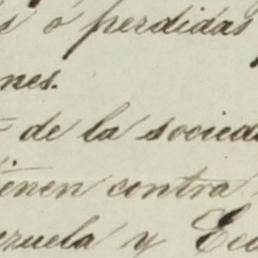 s ó perdidas
nes.
- de la socied
ienen contra
zuela y Ecu